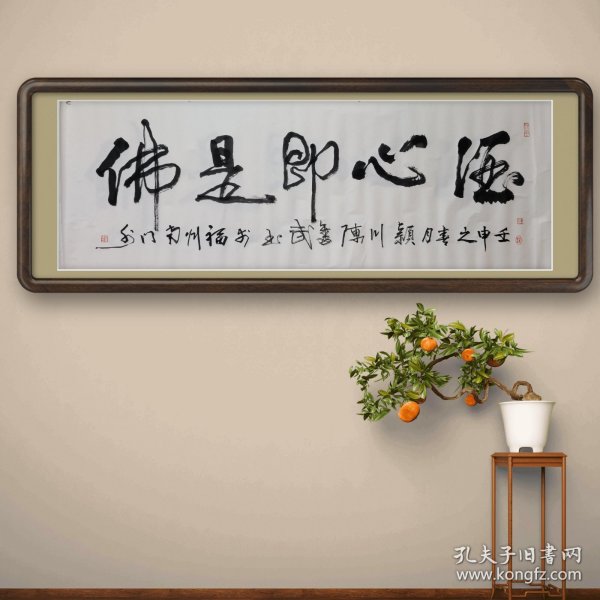 德心即是佛
壬申之春月穎川陳奮武书於福州南门外
孔夫子旧書网
www.kongfz.com